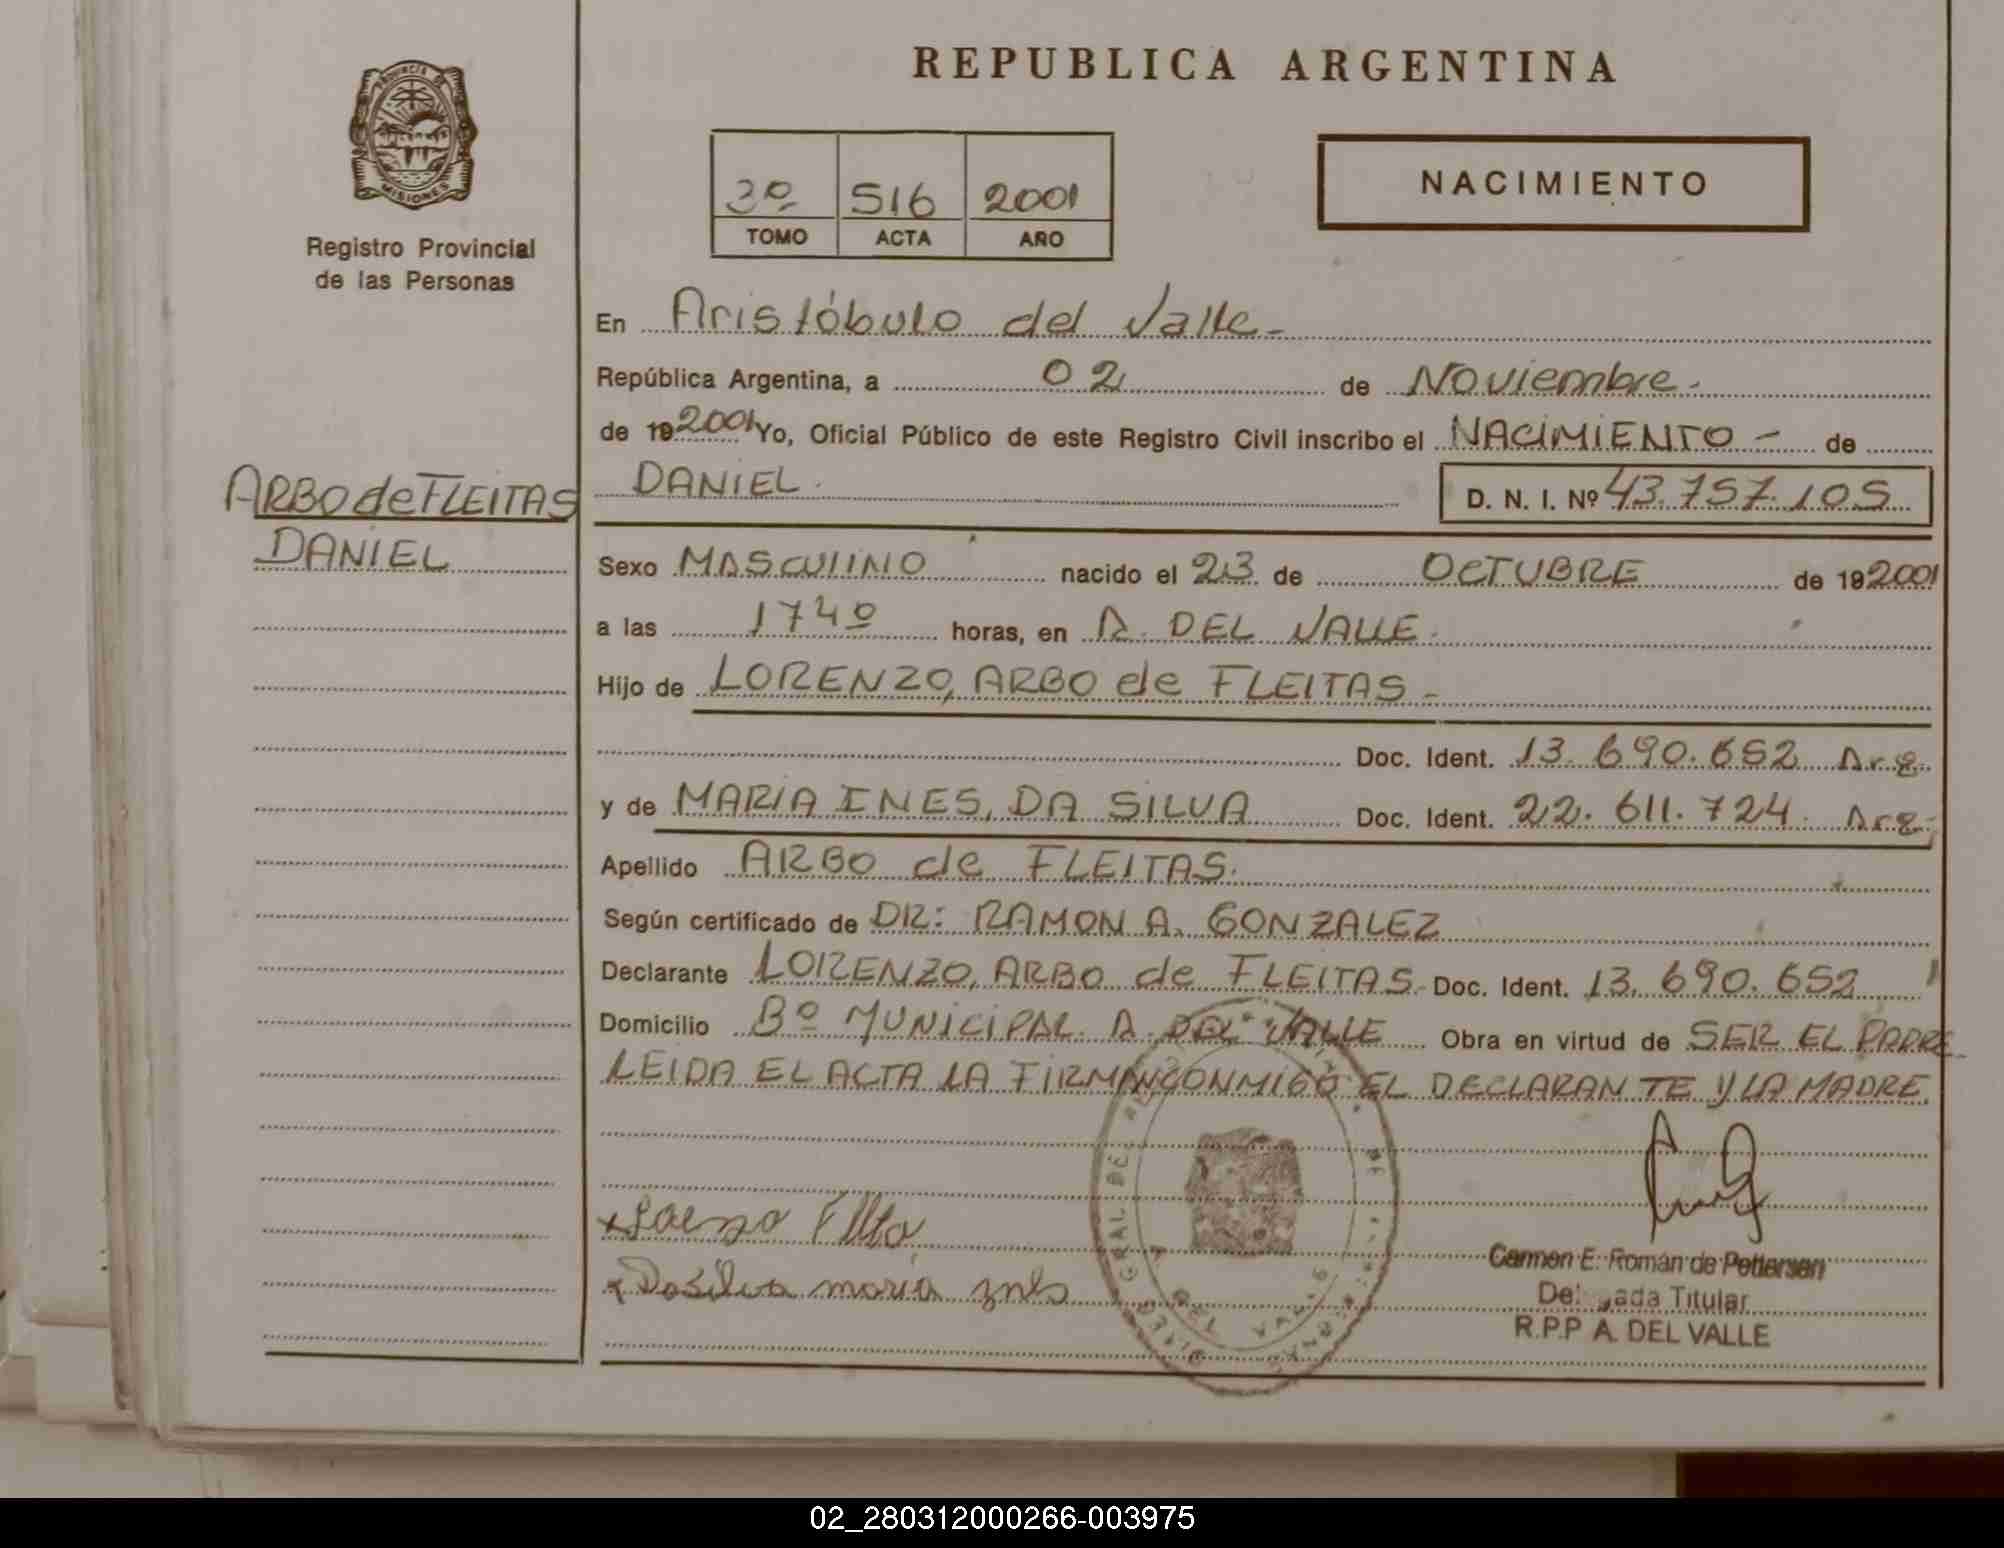 PROVINCIA DE
MISIONES
Registro Provincial
de las Personas
ARBO de FLEITAS
DANIEL
REPUBLICA ARGENTINA
3º 516 2001
TOMO ACTA AÑO
NACIMIENTO
En Aristóbulo del Valle-
República Argentina, a 02 de Noviembre.
de 19 2001 Yo, Oficial Público de este Registro Civil inscribo el NACIMIENTO - de
DANIEL. D. N. I. Nº 43.757.105
Sexo MASCULINO nacido el 23 de OCTUBRE de 19 2001
a las 17 40 horas, en A. DEL VALLE.
Hijo de LORENZO, ARBO de FLEITAS -
Doc. Ident. 13.690.652 Arg.
y de MARIA INES, DA SILVA Doc. Ident. 22.611.724. Arg.
Apellido ARBO de FLEITAS.
Según certificado de DR: RAMON A. GONZALEZ
Declarante LORENZO, ARBO de FLEITAS. Doc. Ident. 13.690.652
Domicilio Bº MUNICIPAL A. DEL VALLE Obra en virtud de SER EL PADRE
LEIDA EL ACTA LA FIRMAN CONMIGO EL DECLARANTE Y LA MADRE.
Dasilva maria
Carmen E. Román de Pettersen
Delegada Titular
R.P.P A. DEL VALLE
02_280312000266-003975